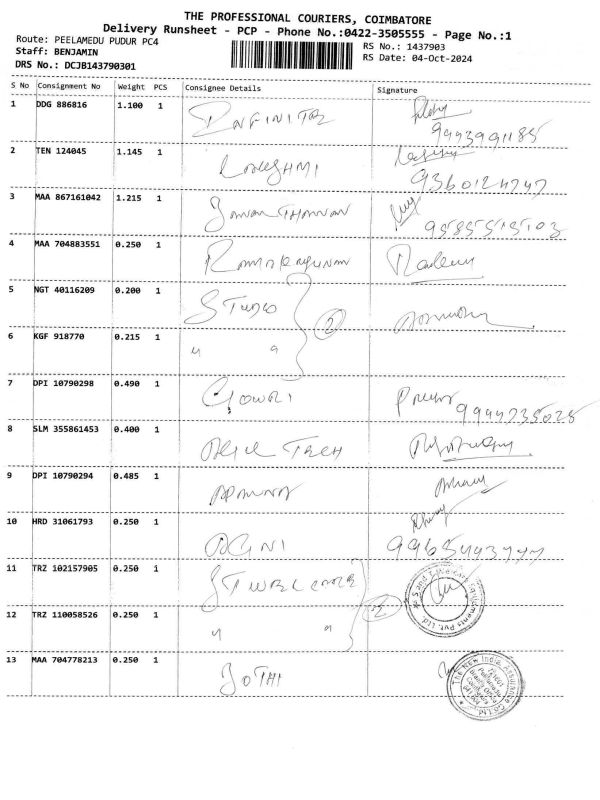 THE PROFESSIONAL COURIERS, COIMBATORE
Delivery Runsheet - PCP - Phone No.:0422-3505555 - Page No.:1
Route: PEELAMEDU PUDUR PC4
RS No.: 1437903
Staff: BENJAMIN
RS Date: 04-Oct-2024
DRS No.: DCJB143790301
S No Consignment No Weight PCS Consignee Details Signature
1 DDG 886816 1.100 1 INFINITE
9993991185
2 TEN 124045 1.145 1
9360124747
3 MAA 867161042 1.215 1
9585515103
4 MAA 704883551 0.250 1
5 NGT 40116209 0.200 1 STUDIO
2
6 KGF 918770 0.215 1 " "
7 DPI 10790298 0.490 1 GOWRI
9994735025
8 SLM 355861453 0.400 1 TECH
9 DPI 10790294 0.485 1
10 HRD 31061793 0.250 1 AGNI
11 TRZ 102157905 0.250 1
2
12 TRZ 110058526 0.250 1 " "
13 MAA 704778213 0.250 1 JOTHI
The New India Assurance Co. Ltd.